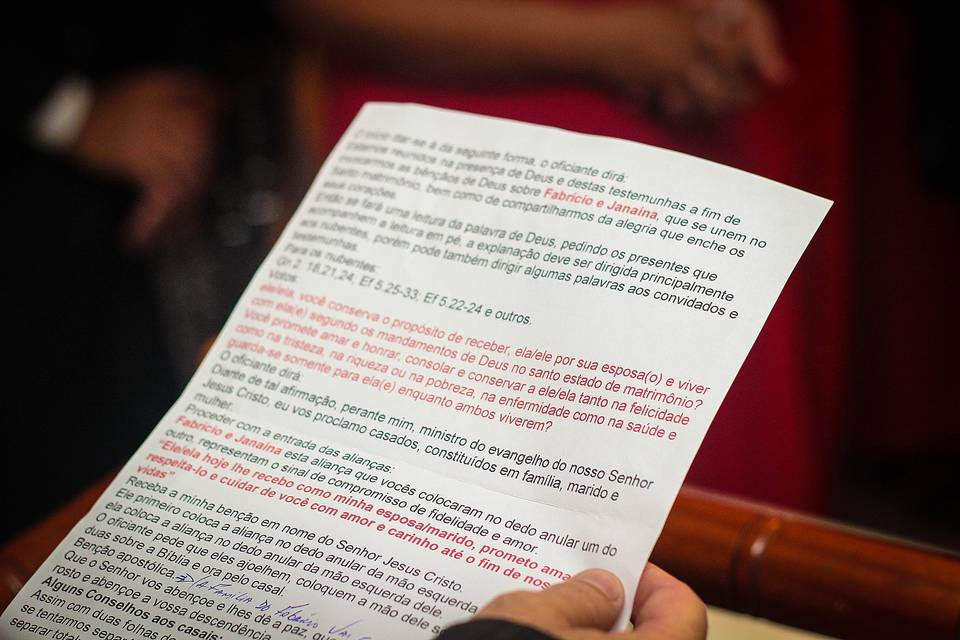 O início dar-se-á da seguinte forma, o oficiante dirá:
Estamos reunidos na presença de Deus e destas testemunhas a fim de
invocarmos as bênçãos de Deus sobre Fabrício e Janaína, que se unem no
Santo matrimônio, bem como de compartilharmos da alegria que enche os
seus corações.
Então se fará uma leitura da palavra de Deus, pedindo os presentes que
acompanhem a leitura em pé, a explanação deve ser dirigida principalmente
aos nubentes, porém pode também dirigir algumas palavras aos convidados e
testemunhas.
Para os nubentes:
Gn 2. 18,21,24, Ef 5.25-33; Ef 5.22-24 e outros.
Votos:
ele/ela, você conserva o propósito de receber, ela/ele por sua esposa(o) e viver
com ela(e) segundo os mandamentos de Deus no santo estado de matrimônio?
Você promete amar e honrar, consolar e conservar a ele/ela tanto na felicidade
como na tristeza, na riqueza ou na pobreza, na enfermidade como na saúde e
guarda-se somente para ela(e) enquanto ambos viverem?
O oficiante dirá:
Diante de tal afirmação, perante mim, ministro do evangelho do nosso Senhor
Jesus Cristo, eu vos proclamo casados, constituídos em família, marido e
mulher.
Proceder com a entrada das alianças:
Fabrício e Janaína esta aliança que vocês colocaram no dedo anular um do
outro, representam o sinal de compromisso de fidelidade e amor.
"Ele/ela hoje lhe recebo como minha esposa/marido, prometo ama
respeita-lo e cuidar de você com amor e carinho até o fim de nos
vidas"
Receba a minha benção em nome do Senhor Jesus Cristo.
Ele primeiro coloca a aliança no dedo anular da mão esquerda
ela coloca a aliança no dedo anular da mão esquerda dele.
O oficiante pede que eles ajoelhem, coloquem a mão dele s
duas sobre a Bíblia e ora pelo casal.
Benção apostólica
Que o Senhor vos abençoe e lhes dê a paz, qu
rosto e abençoe a vossa descendência
Alguns Conselhos aos casais:
Assim com duas folhas d
se tentarmos sepa
separar total